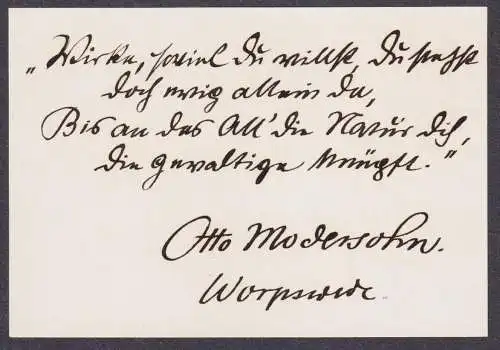 „Wirke, soviel du willst, du stehst
doch ewig allein da,
Bis an das All' die Natur dich,
die gewaltige knüpft."
Otto Modersohn.
Worpswede